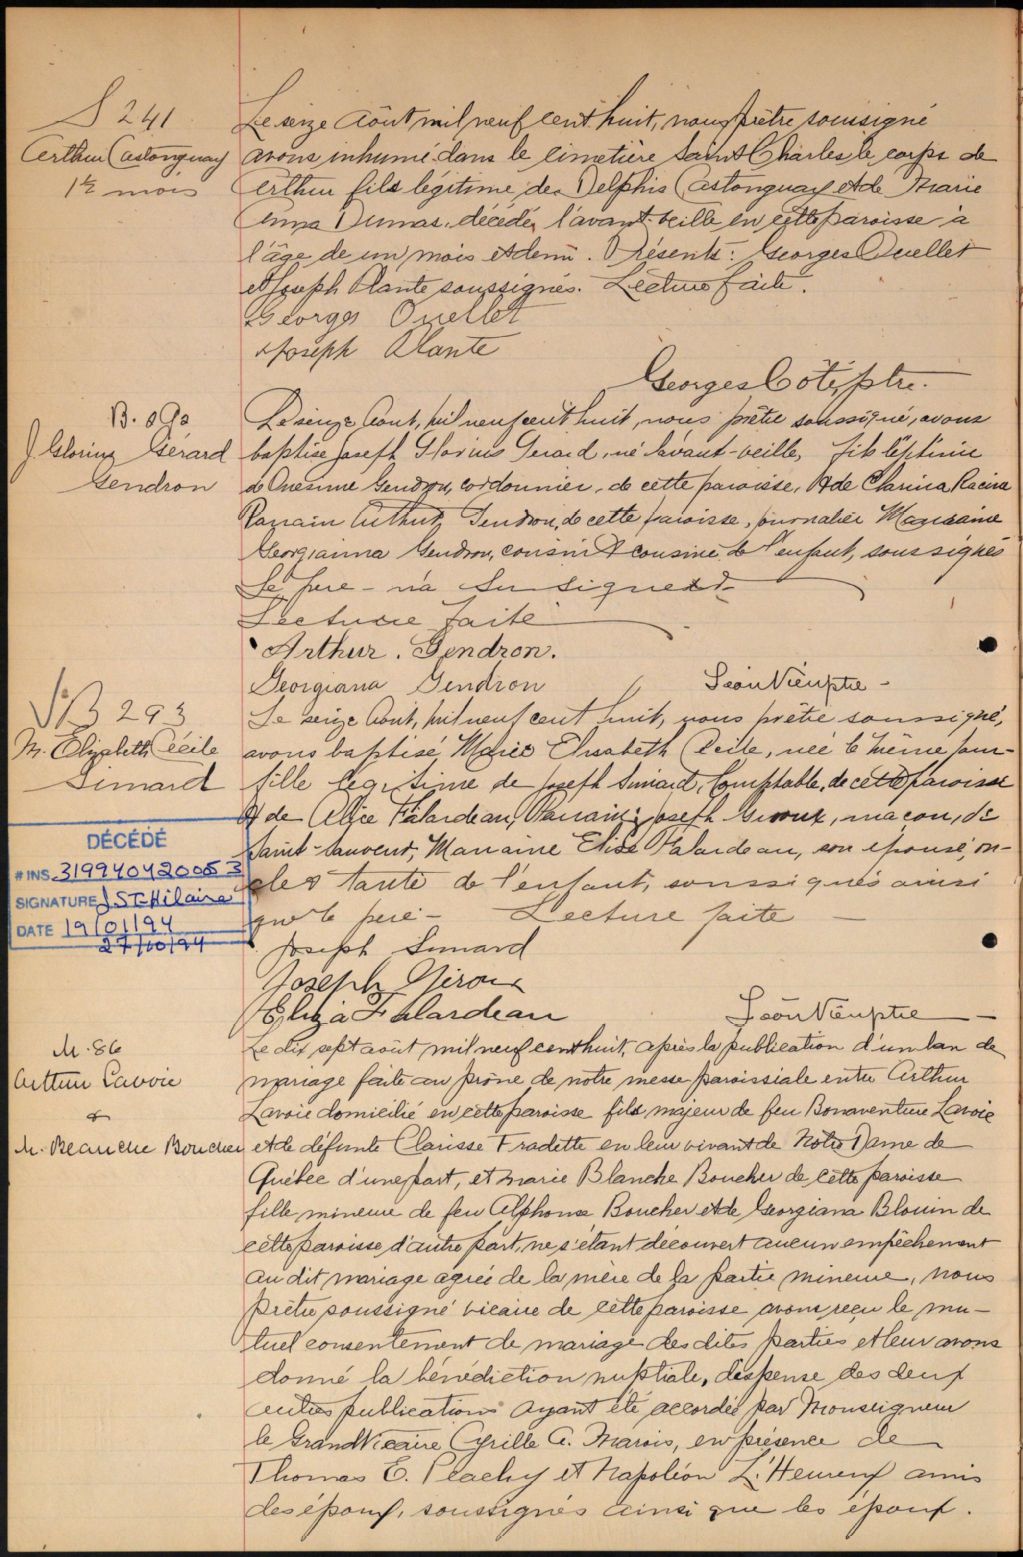 S 241
Arthur Castonguay
1½ mois
Le seize Août mil neuf cent huit, nous prêtre soussigné
avons inhumé dans le cimetière Saint Charles le corps de
Arthur fils légitime de Delphis Castonguay et de Marie
Anna Dumas, décédé l'avant-veille en cette paroisse à
l'âge de un mois et demi. Présents: Georges Ouellet
et Joseph Plante soussignés. Lecture faite.
Georges Ouellet
Joseph Plante
Georges Côté, ptre.
B. 292
J Glorius Gérard
Gendron
Le seize Aout, mil neuf cent huit, nous prêtre soussigné, avons
baptise Joseph Glorius Gerard, né l'avant-veille, fils légitime
de Onesime Gendron, cordonnier, de cette paroisse, & de Clarina Racine
Parrain Arthur Gendron, de cette paroisse, journalier Marraine
Georgianna Gendron, cousin & cousine de l'enfant, soussignés
Le pere - n'a su signer
Lecture faite
Arthur. Gendron.
Georgiana Gendron
Léon Vien ptre -
B 293
M. Elizabeth Cécile
Simard
Le seize Aout, mil neuf cent huit, nous prêtre soussigné,
avons baptisé Marie Elisabeth Cecile, née le même jour-
fille legitime de Joseph Simard, Comptable, de cette paroisse
& de Alice Falardeau, Parrain: Joseph Giroux, maçon, de
Saint-Sauveur, Marraine Elise Falardeau, son épouse, on-
cle & tante de l'enfant, soussignés ainsi
que le pere - Lecture faite -
DÉCÉDÉ
# INS. 319940420005 3
SIGNATURE J ST-Hilaire
DATE 19/01/94
27/10/94
Joseph Simard
Joseph Giroux
Eliza Falardeau
Léon Vien ptre -
M. 86
Arthur Lavoie
&
M. Blanche Boucher
Le dix sept août mil neuf cent huit, après la publication d'un ban de
mariage faite au prône de notre messe paroissiale entre Arthur
Lavoie domicilié en cette paroisse fils majeur de feu Bonaventure Lavoie
et de défunte Clarisse Fradette en leur vivant de Notre Dame de
Québec d'une part, et Marie Blanche Boucher de cette paroisse
fille mineure de feu Alphonse Boucher et de Georgiana Blouin de
cette paroisse d'autre part, ne s'étant découvert aucun empêchement
au dit mariage agréé de la mère de la partie mineure, nous
prêtre soussigné vicaire de cette paroisse avons reçu le mu-
tuel consentement de mariage des dites parties et leur avons
donné la bénédiction nuptiale, dispense des deux
autres publications ayant été accordée par Monseigneur
le Grand Vicaire Cyrille A. Marois, en présence de
Thomas E. Peachy et Napoléon L'Heureux amis
des époux, soussignés ainsi que les époux.